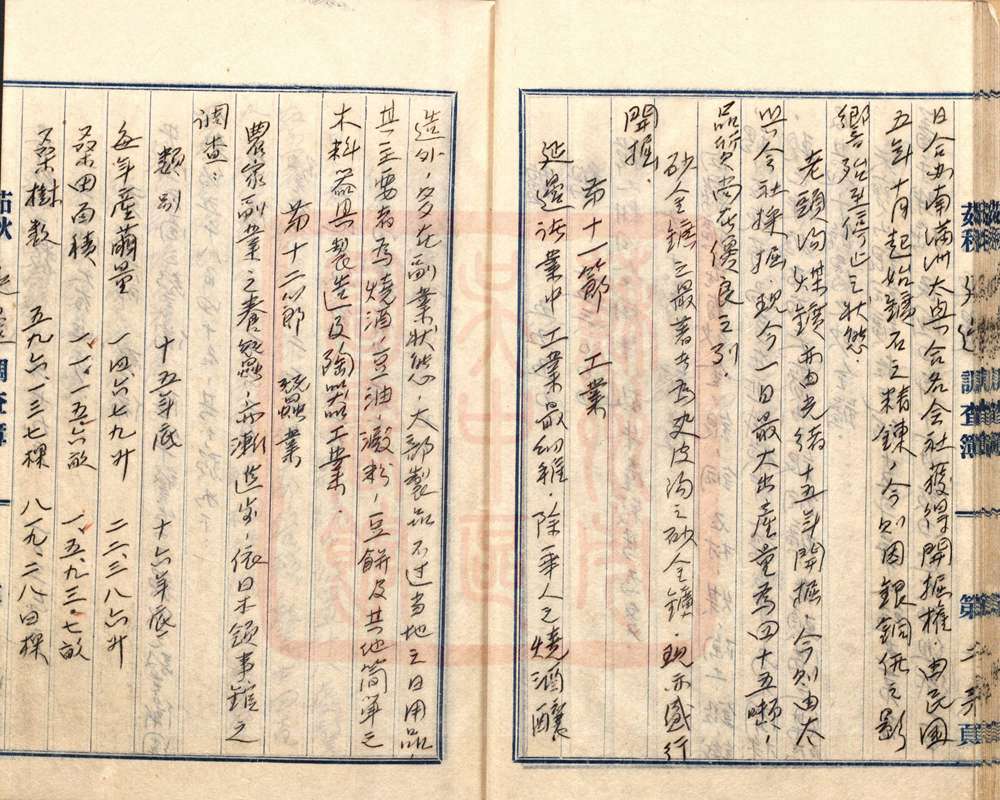 日合办南滿洲大興合名会社獲得開掘權，由民國
五年十月起始鑛石之精鍊，今则因銀銅価之影
響殆至停止之状態．
老頭沟煤鑛亦由光绪十五年開掘，今则由大
興会社採掘，现今一日最大出產量為四十五噸，
品質尚在優良之列．
砂金鑛之最著者為夹皮沟之砂金鑛．现亦盛行
開掘．
第十一節 工業
延邊诸業中工業最幼稚，除華人之燒酒釀
造外，多在副業状態，大部製品不过当地之日用品，
其主要者為燒酒，豆油，澱粉，豆餅及其他简单之
木料器具製造及陶器工業．
第十二節 蚕業
農家副業之養蚕，亦漸進步，依日本領事館之
调查：
類别 十五年底 十六年底
每年產繭量 一四六七九升 二二，三八六升
桑田面積 一，一一五．六畝 一，五九三．七畝
桑樹数 五九六，一三七棵 八一九，二八四棵
调查簿
第 頁